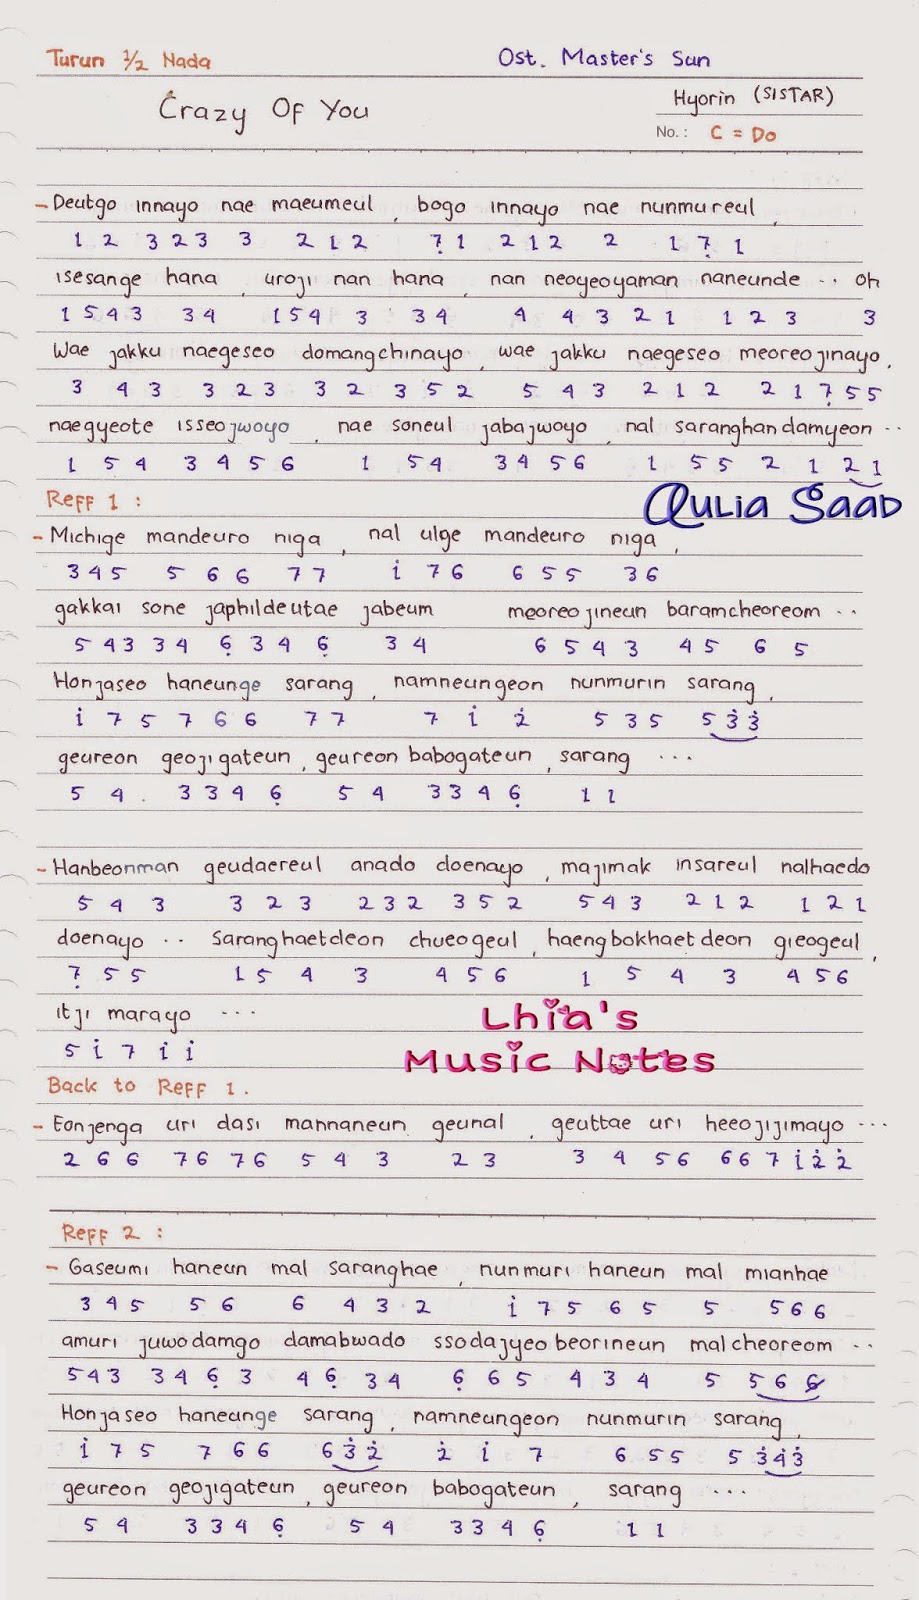 Turun ½ Nada    Ost. Master's Sun
Crazy Of You    Hyorin (SISTAR)
No.: C = Do
- Deutgo innayo nae maeumeul, bogo innayo nae nunmureul,
1 2 3 2 3 3 2 1 2 7̣ 1 2 1 2 2 1 7̣ 1
isesange hana, uroji nan hana, nan neoyeoyaman naneunde .. oh
1 5 4 3 3 4 1 5 4 3 3 4 4 4 3 2 1 1 2 3 3
Wae jakku naegeseo domangchinayo, wae jakku naegeseo meoreojinayo,
3 4 3 3 2 3 3 2 3 5 2 5 4 3 2 1 2 2 1 7̣ 5 5
naegyeote isseojwoyo, nae soneul jabajwoyo, nal saranghandamyeon ..
1 5 4 3 4 5 6 1 5 4 3 4 5 6 1 5 5 2 1 2 1
Reff 1 :
Aulia Saab
- Michige mandeuro niga, nal ulge mandeuro niga,
3 4 5 5 6 6 7 7 i 7 6 6 5 5 3 6
gakkai sone japhildeutae jabeum meoreojineun baramcheoreom ..
5 4 3 3 4 6̣ 3 4 6̣ 3 4 6 5 4 3 4 5 6 5
Honjaseo haneunge sarang, namneungeon nunmurin sarang,
i 7 5 7 6 6 7 7 7 i 2̇ 5 3 5 5 3̇ 3̇
geureon geojigateun, geureon babogateun, sarang ...
5 4 . 3 3 4 6̣ 5 4 3 3 4 6̣ 1 1
- Hanbeonman geudaereul anado doenayo, majimak insareul nalhaedo
5 4 3 3 2 3 2 3 2 3 5 2 5 4 3 2 1 2 1 2 1
doenayo .. Saranghaetdeon chueogeul, haengbokhaetdeon gieogeul,
7̣ 5 5 1 5 4 3 4 5 6 1 5 4 3 4 5 6
itji marayo ...
5 i 7 i i
Lhia's
Music Notes
Back to Reff 1.
- Eonjenga uri dasi mannaneun geunal, geuttae uri heeojijimayo ...
2 6 6 7 6 7 6 5 4 3 2 3 3 4 5 6 6 6 7 i 2̇ 2̇
Reff 2 :
- Gaseumi haneun mal saranghae, nunmuri haneun mal mianhae
3 4 5 5 6 6 4 3 2 i 7 5 6 5 5 5 6 6
amuri juwodamgo damabwado ssodajyeo beorineun malcheoreom ..
5 4 3 3 4 6̣ 3 4 6̣ 3 4 6̣ 6 5 4 3 4 5 5 6 6
Honjaseo haneunge sarang, namneungeon nunmurin sarang,
i 7 5 7 6 6 6 3̇ 2̇ 2̇ i 7 6 5 5 5 3̇ 4̇ 3̇
geureon geojigateun, geureon babogateun, sarang ...
5 4 3 3 4 6̣ 5 4 3 3 4 6̣ 1 1